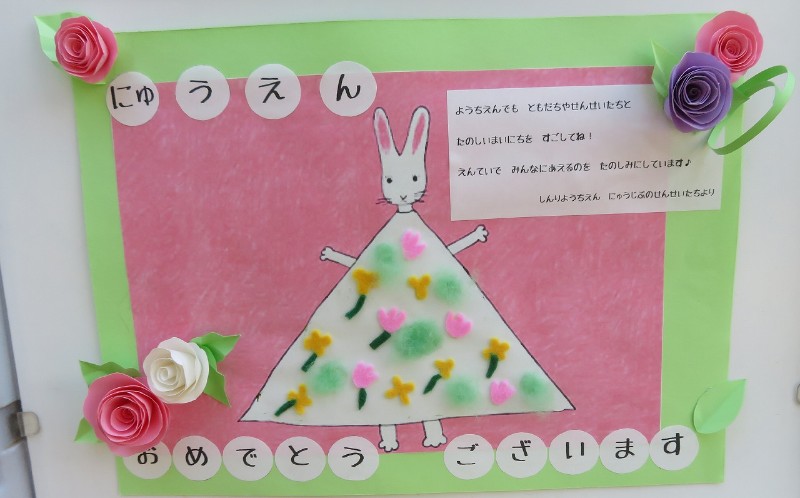 にゅうえん
ようちえんでも ともだちやせんせいたちと
たのしいまいにちを すごしてね！
えんていで みんなにあえるのを たのしみにしています♪
しんりようちえん にゅうじぶのせんせいたちより
おめでとう ございます